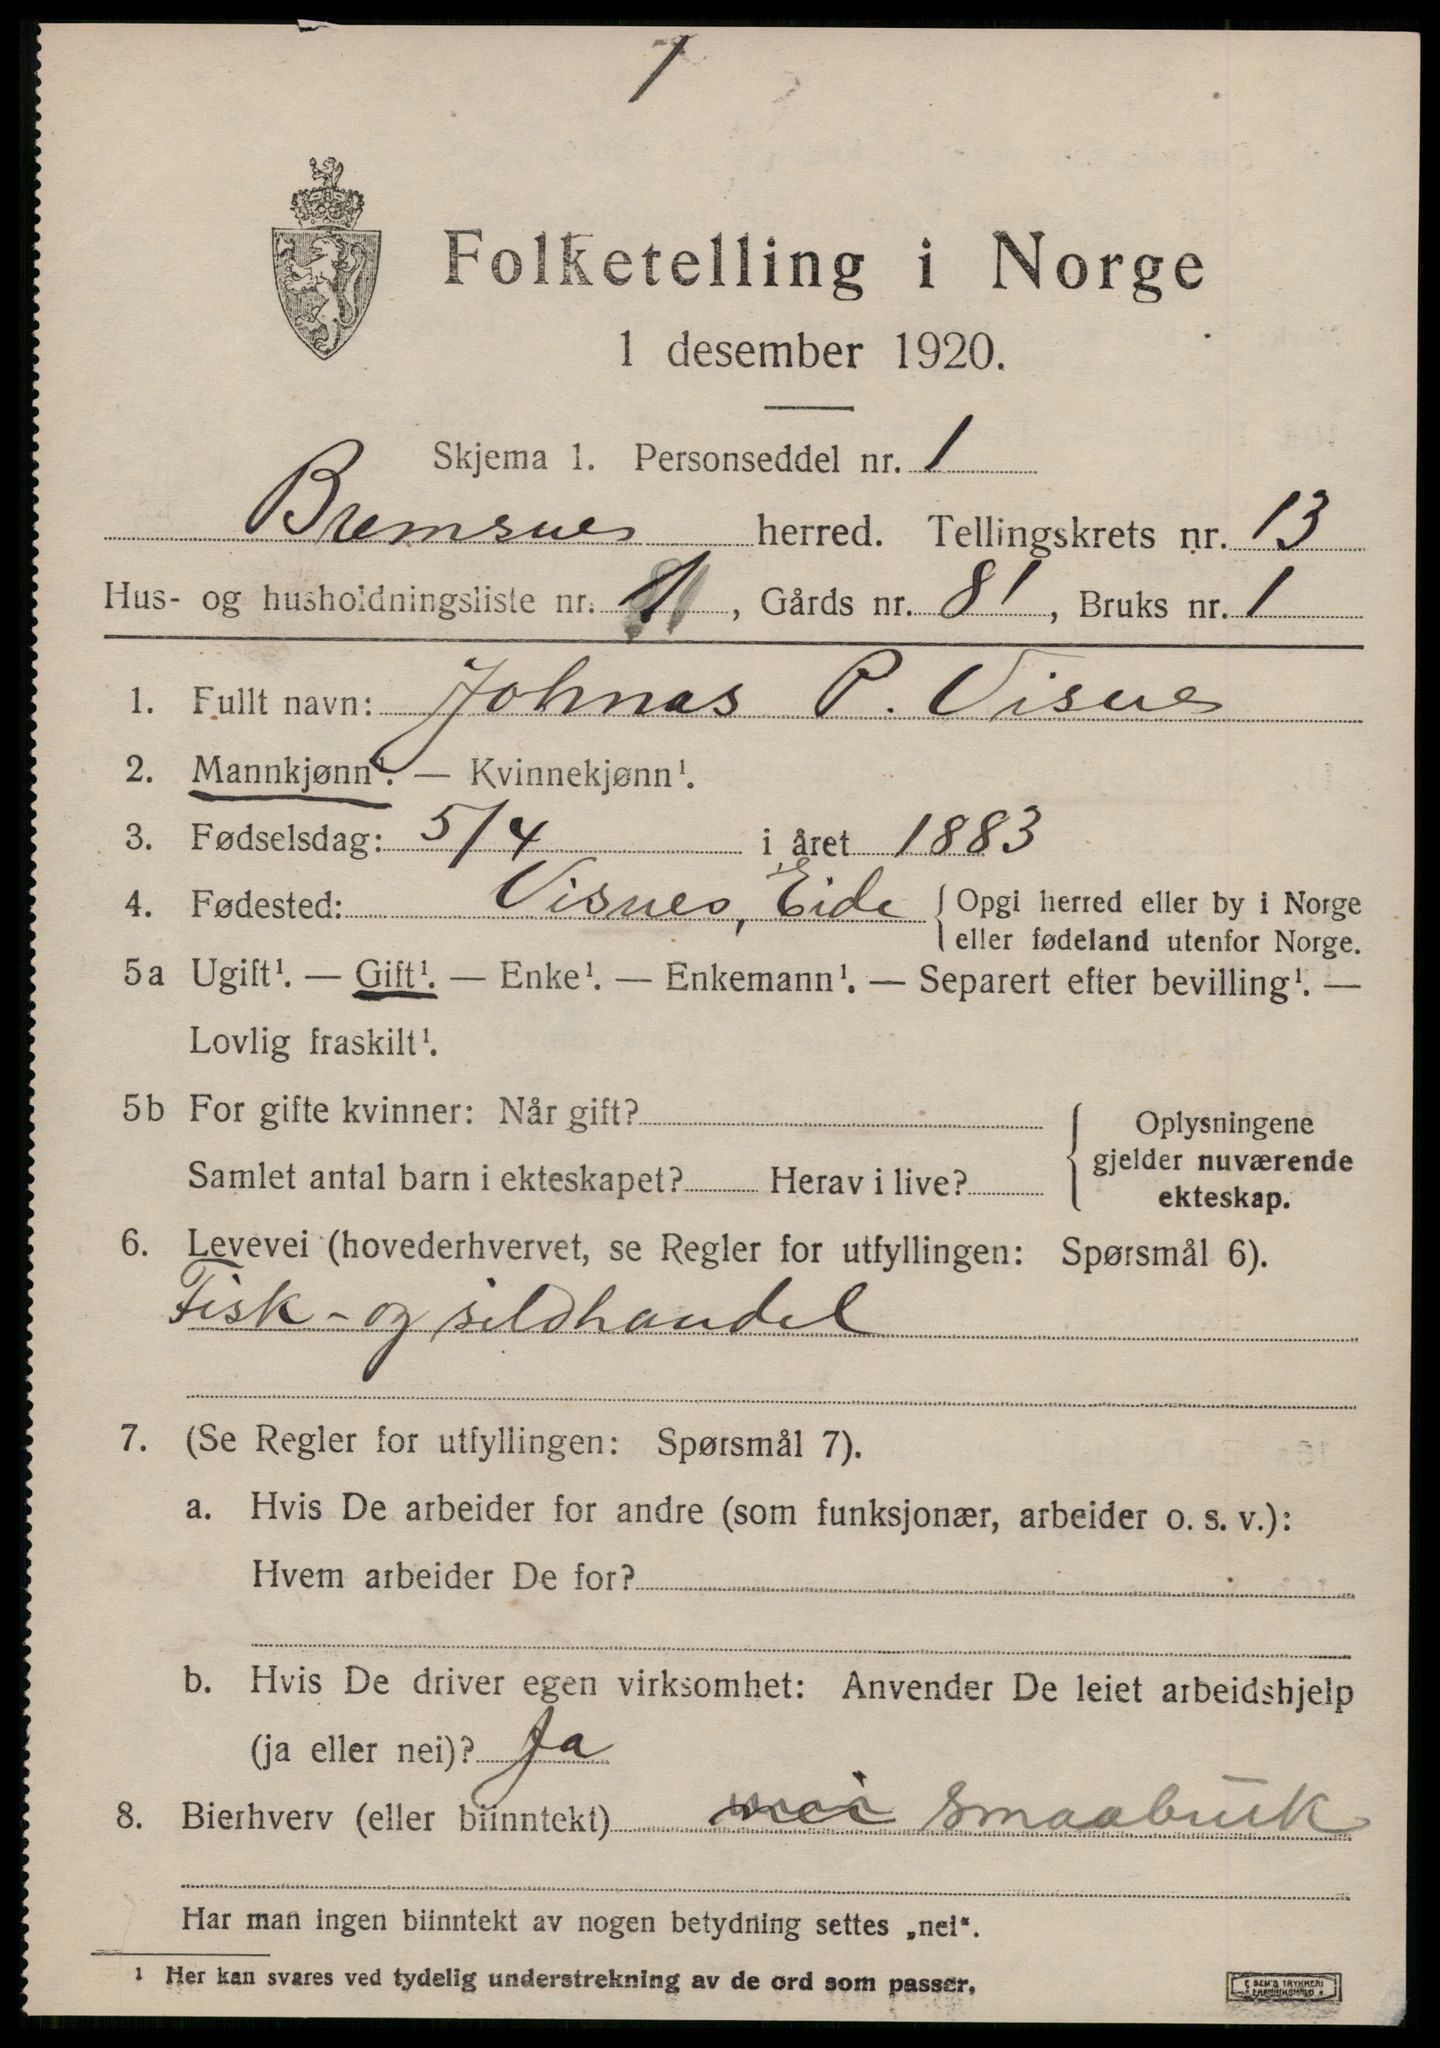 1
Folketelling i Norge
1 desember 1920.
Skjema 1. Personseddel nr. 1
Bremsnes herred. Tellingskrets nr. 13
Hus- og husholdningsliste nr. 1, Gårds nr. 81, Bruks nr. 1
1. Fullt navn: Johnas P. Visnes
2. Mannkjønn¹. — Kvinnekjønn¹.
3. Fødselsdag: 5/4 i året 1883
4. Fødested: Visnes, Eide { Opgi herred eller by i Norge
eller fødeland utenfor Norge.
5a Ugift¹. — Gift¹. — Enke¹. — Enkemann¹. — Separert efter bevilling¹. —
Lovlig fraskilt¹.
5b For gifte kvinner: Når gift?
Samlet antal barn i ekteskapet? Herav i live?
Oplysningene
gjelder nuværende
ekteskap.
6. Levevei (hovederhvervet, se Regler for utfyllingen: Spørsmål 6).
Fisk- og sildhandel
7. (Se Regler for utfyllingen: Spørsmål 7).
a. Hvis De arbeider for andre (som funksjonær, arbeider o. s. v.):
Hvem arbeider De for?
b. Hvis De driver egen virksomhet: Anvender De leiet arbeidshjelp
(ja eller nei)? Ja
8. Bierhverv (eller biinntekt) nei smaabruk
Har man ingen biinntekt av nogen betydning settes „nei“.
¹ Her kan svares ved tydelig understrekning av de ord som passer.